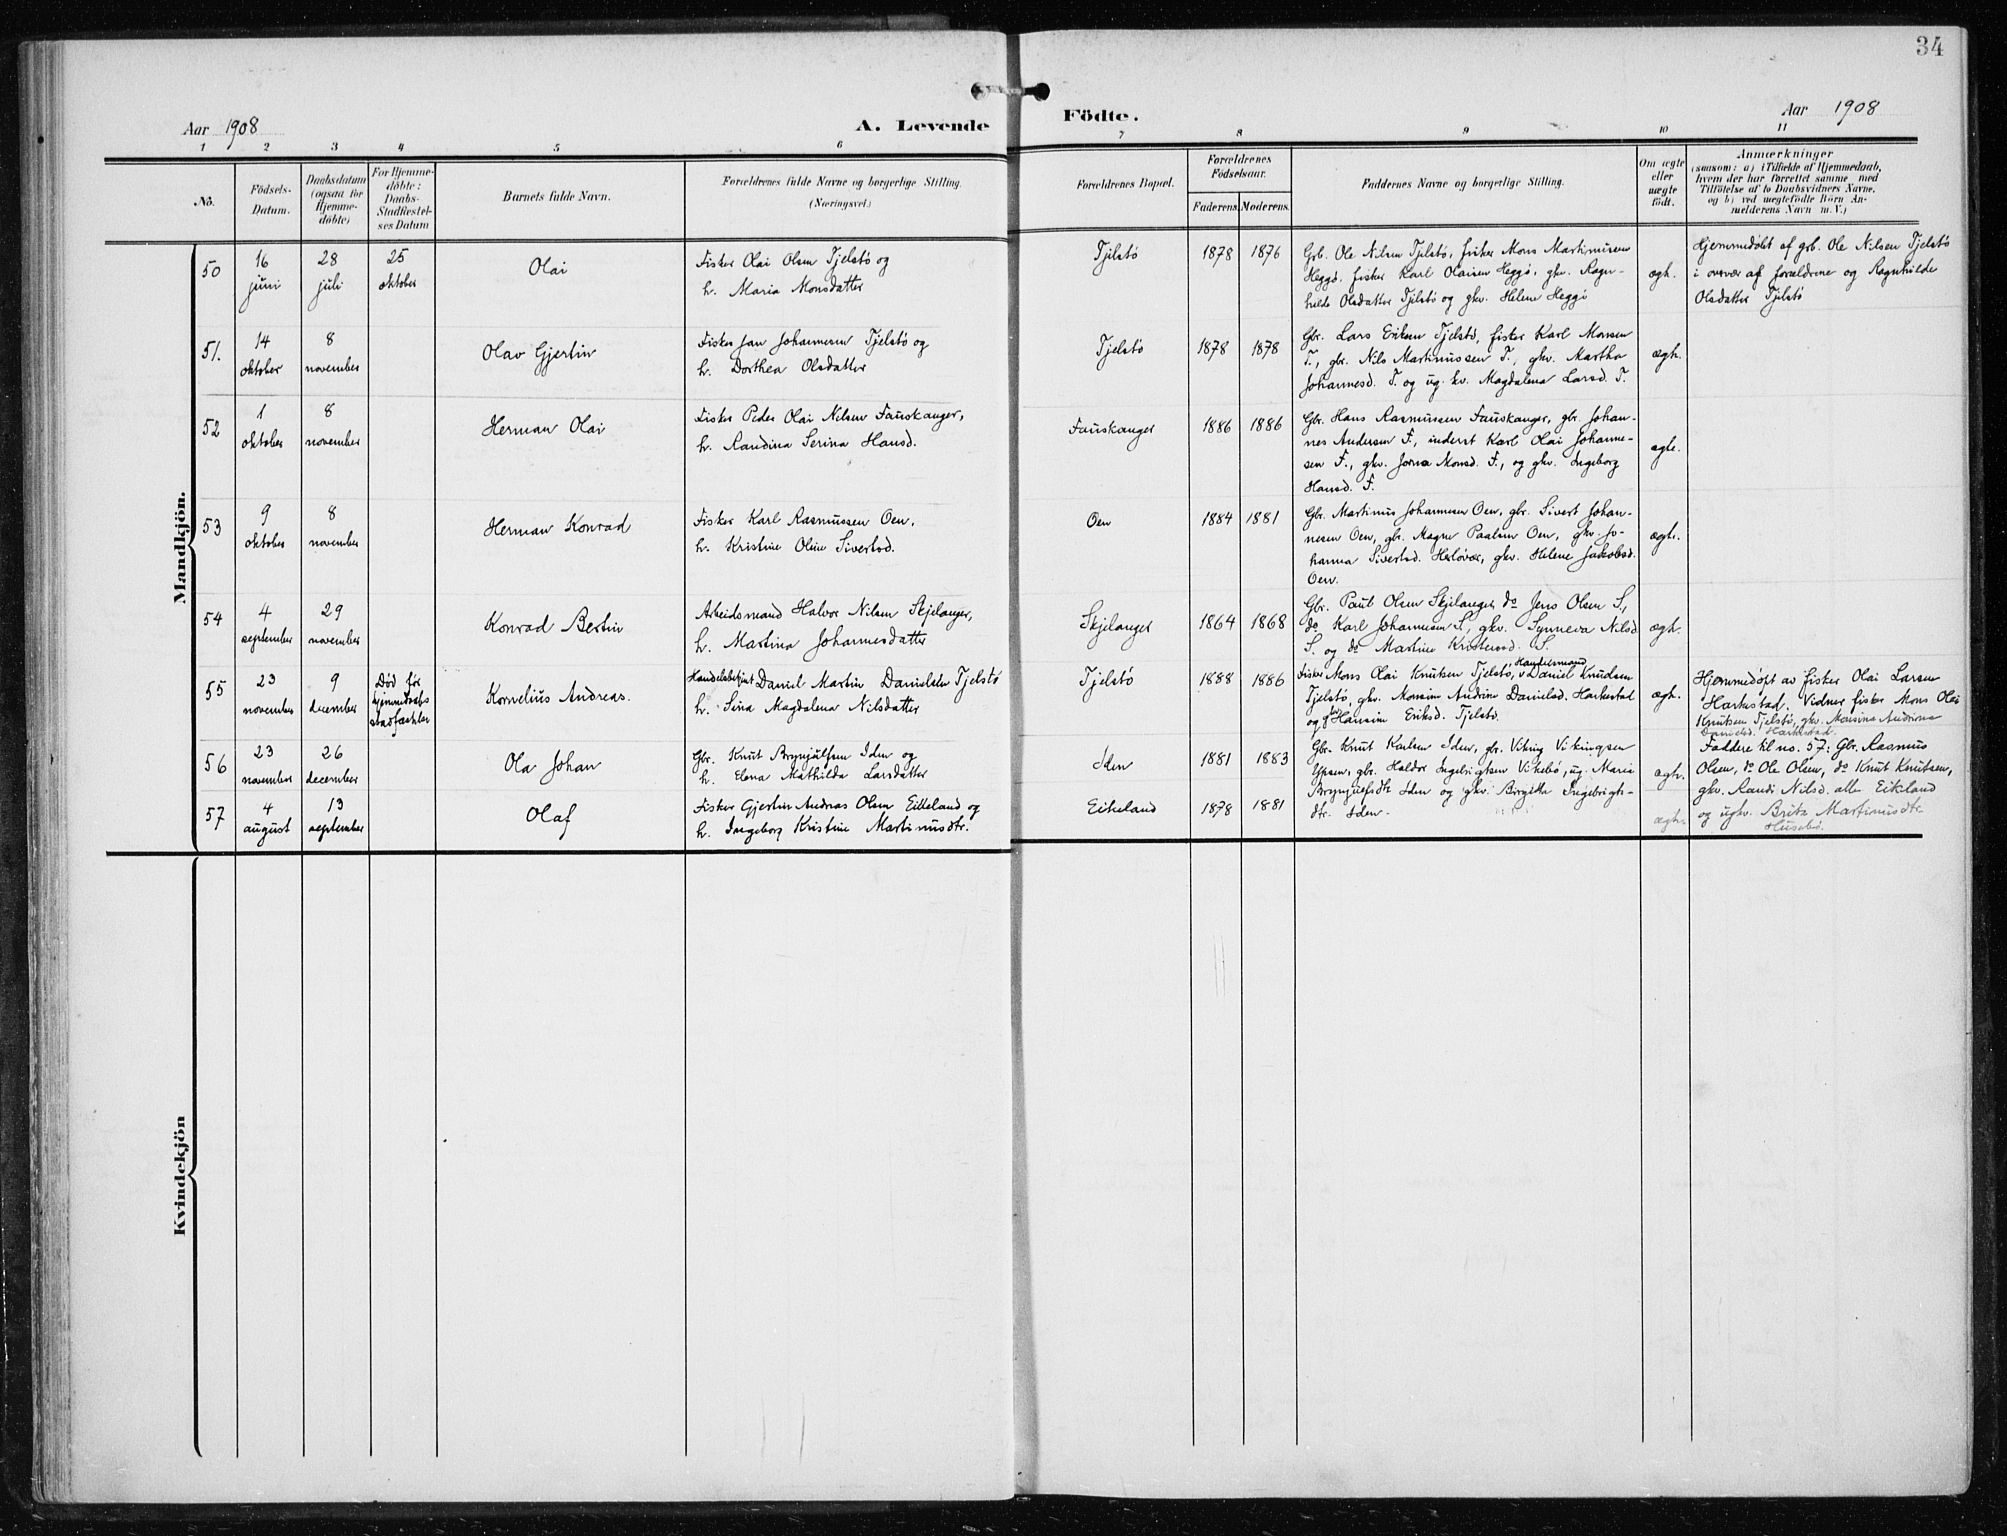 34
Aar 1908
A. Levende
Födte.
Aar 1908
1 2 3 4 5 6 7 8 9 10 11
No.
Födsels-
Datum.
Daabsdatum
(ogsaa for
Hjemme-
döbte)
For Hjemme-
döbte:
Daabs-
Stadfæstel-
ses Datum
Barnets fulde Navn.
Forældrenes fulde Navne og borgerlige Stilling.
(Næringsvei.)
Forældrenes Bopæl.
Forældrenes
Födselsaar.
Faderens. Moderens.
Faddernes Navne og borgerlige Stilling.
Om ægte
eller
uægte
födt.
Anmærkninger
(saasom: a) i Tilfælde af Hjemmedaab,
hvem der har forrettet samme med
Tilföielse af to Daabsvidners Navne,
og b) ved uægtefödte Börn An-
melderens Navn m. V.)
Mandkjön.
50
16
juni
28
juli
25
oktober
Olai
Fisker Olai Olsen Tjelstø og
h. Maria Monsdatter
Tjelstø
1878 1876
Grb. Ole Nilsen Tjelstø, fisker Mons Martinusen
Heggø, fisker Karl Olaisen Heggø, gkv. Ragn-
hilde Olsdatter Tjelstø og gkv. Helene Heggø
ægt.
Hjemmedøbt af grb. Ole Nilsen Tjelstø
i overvær af forældrene og Ragnhilde
Olsdatter Tjelstø
51.
14
oktober
8
november
Olav Gjertin
Fisker Jan Johannesen Tjelstø og
h. Dorthea Olsdatter
Tjelstø
1878 1878
Gbr. Lars Eriksen Tjelstø, fisker Karl Monsen
T., gbr. Nils Martinussen T., gkv. Martha
Johannesd. T. og ug. kv. Magdalena Larsd. T.
ægt.
52
1
oktober
8
november
Herman Olai
Fisker Peder Olai Nilsen Fauskanger,
h. Randina Serina Hansd.
Fauskanger
1886 1886
Gbr. Hans Rasmussen Fauskanger, gbr. Johan-
nes Andersen F., inderst Karl Olai Johanne-
sen F., gkv. Jorna Monsd. F., og gkv. Ingeborg
Hansd. F.
ægte.
53
9
oktober
8
november
Herman Konrad
Fisker Karl Rasmussen Oen,
h. Kristine Oline Sivertsd.
Oen
1884 1881
Gbr. Martinus Johannesen Oen, gbr. Sivert Johan-
nesen Oen, gbr. Magne Paalsen Oen, gkv. Jo-
hanna Sivertsd. Herløvær, gkv. Helene Jakobsd.
Oen.
ægt.
54
4
september
29
november
Konrad Bertin
Arbeidsmand Halvor Nilsen Skjelanger,
h. Martina Johannesdatter
Skjelanger
1864 1868
Gbr. Paul Olsen Skjelanger, do Jens Olsen S.,
do Karl Johannesen S., gkv. Synneva Nilsd.
S. og do Martine S.
ægt.
55
23
november
9
december
Død før
hjemmedaabs
stadfæstelse
Kornelius Andreas.
Handelsbetjent Daniel Martin Danielsen Tjelstø
h. Sina Magdalena Nilsdatter
Tjelstø
1888 1886
Handelsmand
Fisker Mons Olai Knutsen Tjelstø, Daniel Knudsen
Tjelstø, gkv. Monsine Andrine Danielsd. Harkestad
og gkv Hansine Eriksd. Tjelstø.
ægt.
Hjemmedøpt av fisker Olai Larsen
Harkestad. Vidner fisker Mons Olai
Knutsen Tjelstø, gkv. Monsina Andrina
Danielsd. Harkestad.
56
23
november
26
december
Ola Johan
Gbr. Knut Brynjulfsen Iden og
h. Elena Mathilda Larsdatter
Iden
1881 1883
Gbr. Knut Karlsen Iden, gbr. Viking Vikingsen
Ypsøn, gbr. Haldor Ingebrigtsen Vikebø, ug. Maria
Brynjulfsdtr. Iden og gkv. Birgitta Ingebrigts-
dtr. Iden.
ægt.
Faddere til no. 57: Gbr. Rasmus
Olsen, do Ole Olsen, do Knut Knutsen,
gkv. Randi Nilsd. alle Eikeland
og ugkv. Brita Martinusdtr.
Husebø.
57
4
august
13
september
Olaf
Fisker Gjertin Andreas Olsen Eikeland og
h. Ingeborg Kristine Martinusdtr.
Eikeland
1878 1881
ægt.
Kvindekjön